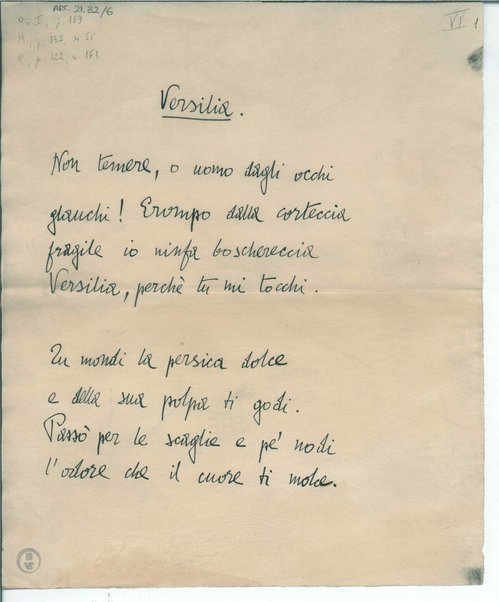 ARC. 21.32/6
O., I, p. 189
M., p. 132, n. 55
VI 1
Versilia.
Non temere, o uomo dagli occhi
glauchi! Erompo dalla corteccia
fragile io ninfa boschereccia
Versilia, perchè tu mi tocchi.
Tu mondi la persica dolce
e della sua polpa ti godi.
Passò per le scaglie e pe' nodi
l'odore che il cuore ti molce.